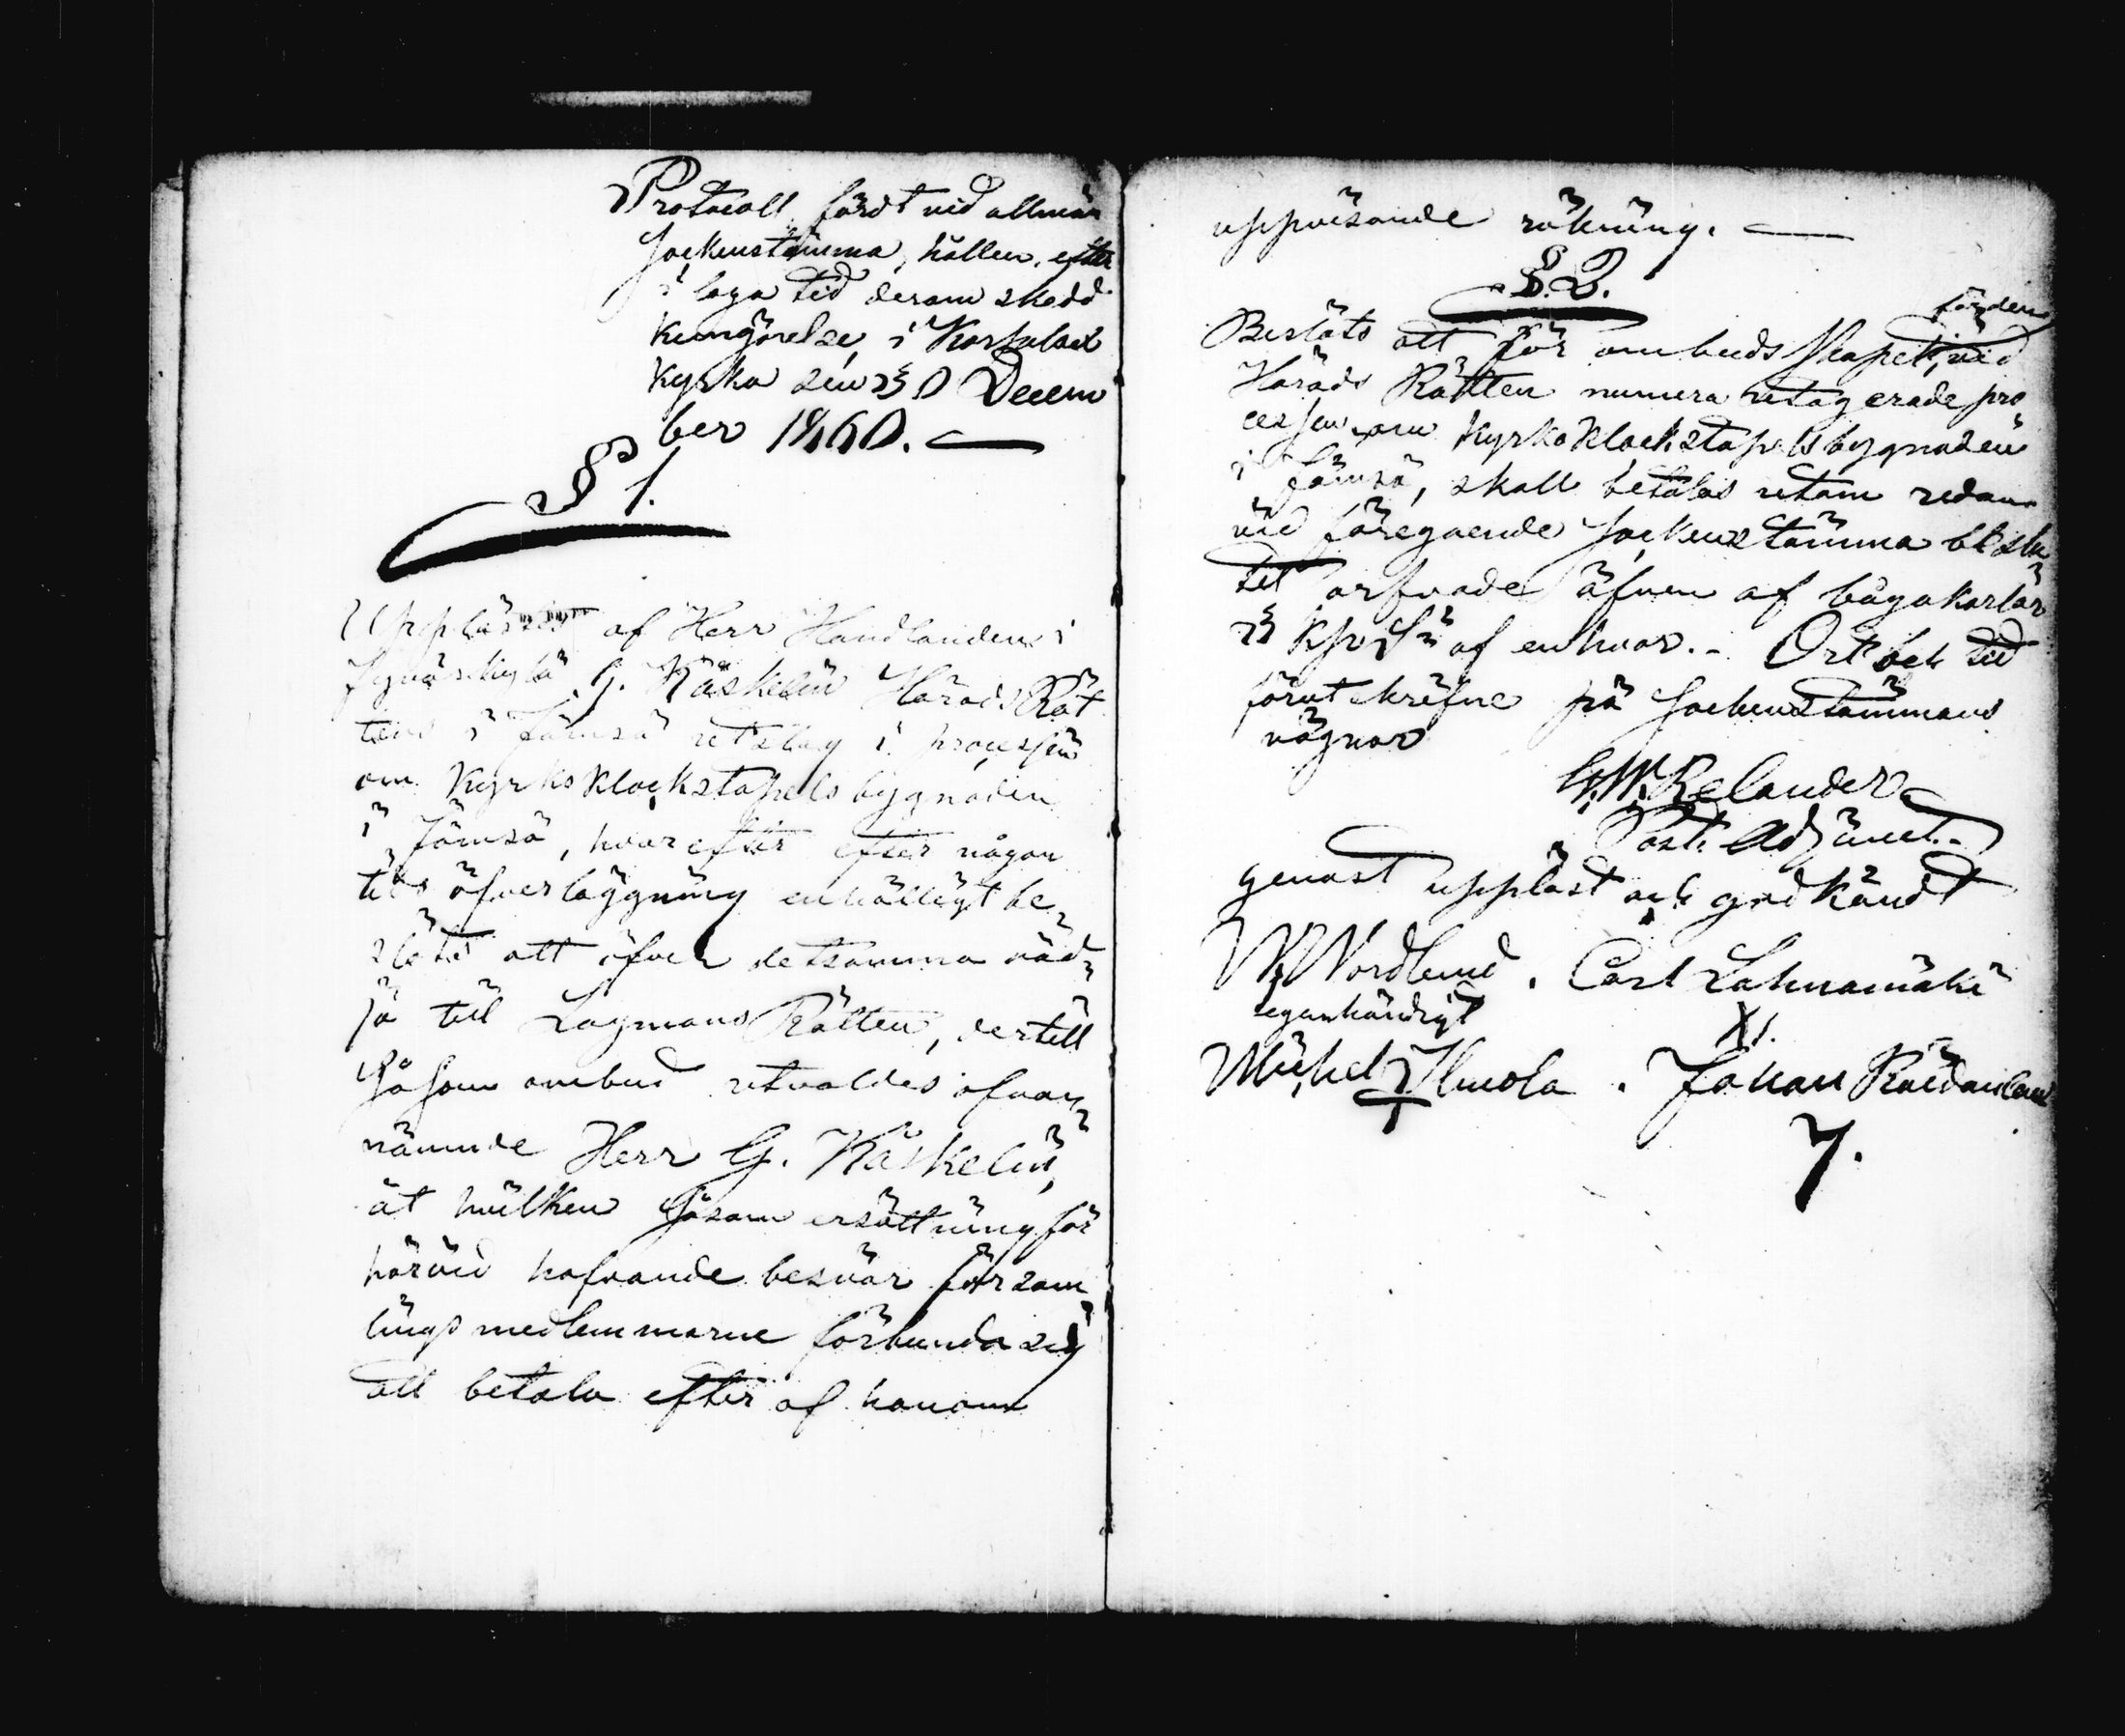 Protocoll fördt vid allmän
Sockenstämma, hållen, efter
i laga tid derom skedd
kungörelse, i Korpilaks
Kyrka den 23 Decem
ber 1860. —
§ 1.
Upplästes af Herr Handlanden i
Jyväskylä G. Käskelin Härads Rät
tens i Jämsä utslag i processen
om Kyrko Klockstapels bygnaden
i Jämsä, hvarefter efter någon
tids öfverläggning enhälligt be
slöts att öfver detsamma väd
ja till Lagmans Rätten, dertill
såsom ombud utvaldes ofvan
nämnde Herr G. Käskelin,
åt hvilken såsom ersättning för
härvid hafvande besvär försam
lings medlemmarne förbundo sig
att betala efter af honom
uppvisande räkning. —
§. 2.
Beslöts att för ombuds skapet, vid
Härads Rätten numera utagerade pro
cessen om Kyrko Klockstapels bygnaden
i Jämsä, skall betalas utom redan
vid föregående Sockenstämma beslu
tet arfvode äfven af bågakarlar
af enhvar. - Ort och tid
förutskrefne på Sockenstämmans
vägnar
G. W. Relander
Past. Adjunct.
genast uppläst och godkändt
W Nordlund. Carl Lahnamäki
egenhändigt
Michel Ilmola. Johan